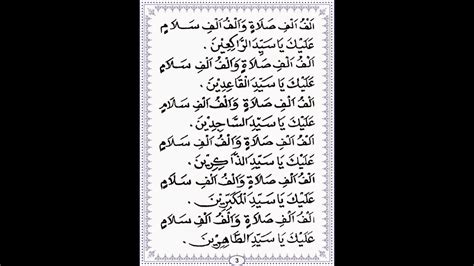 اَلْفُ اَلْفِ صَلَاةٍ وَاَلْفُ اَلْفِ سَلَامٍ
عَلَيْكَ يَا سَيِّدَ الرَّاكِعِيْنَ .
اَلْفُ اَلْفِ صَلَاةٍ وَاَلْفُ اَلْفِ سَلَامٍ
عَلَيْكَ يَا سَيِّدَ الْقَاعِدِيْنَ .
اَلْفُ اَلْفِ صَلَاةٍ وَاَلْفُ اَلْفِ سَلَامٍ
عَلَيْكَ يَا سَيِّدَ السَّاجِدِيْنَ .
اَلْفُ اَلْفِ صَلَاةٍ وَاَلْفُ اَلْفِ سَلَامٍ
عَلَيْكَ يَا سَيِّدَ الذَّاكِرِيْنَ .
اَلْفُ اَلْفِ صَلَاةٍ وَاَلْفُ اَلْفِ سَلَامٍ
عَلَيْكَ يَا سَيِّدَ الْمُكَبِّرِيْنَ .
اَلْفُ اَلْفِ صَلَاةٍ وَاَلْفُ اَلْفِ سَلَامٍ
عَلَيْكَ يَا سَيِّدَ الطَّاهِرِيْنَ .
3